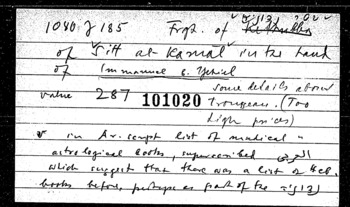 1080 J 185 Frgt. of
of Sitt al-Kamal in the hand
of Immanuel b. Yehiel
value 287 101020 some details about
Trousseau. (Too
high prices)
v in Ar. script list of medical -
astrological books, superscribed
which suggest that there was a list of Heb.
books before, perhaps as part of the